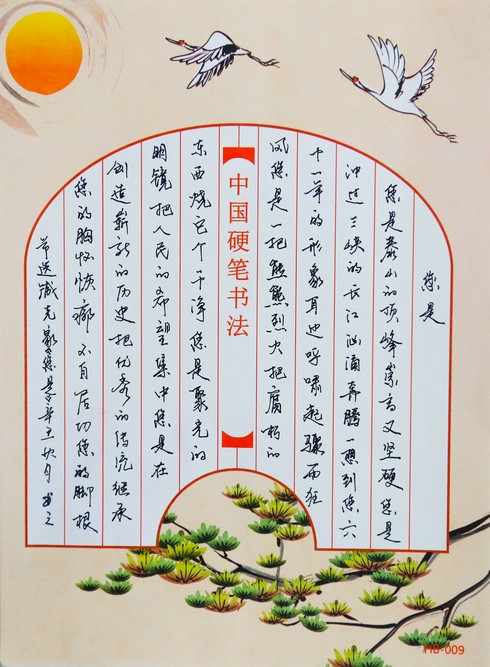 您是
您是泰山的顶峰崇高又坚硬您是
冲过三峡的长江汹涌奔腾一想到您六
十一年的形象耳边呼啸起骤雨狂
风您是一把熊熊烈火把腐朽的
中国硬笔书法
东西烧它个干净您是聚光的
明镜把人民的希望集中您是在
创造崭新的历史把优秀的传统继承
您的胸怀恢廓不自居功您的脚根
节选臧克家您是 月 书
HB-009